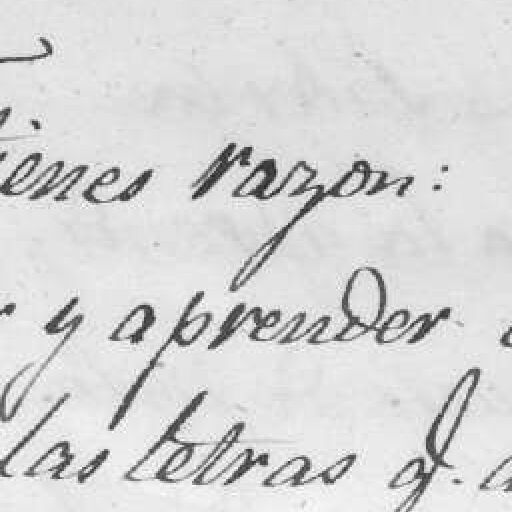 tienes razon:
y aprender
las letras q.